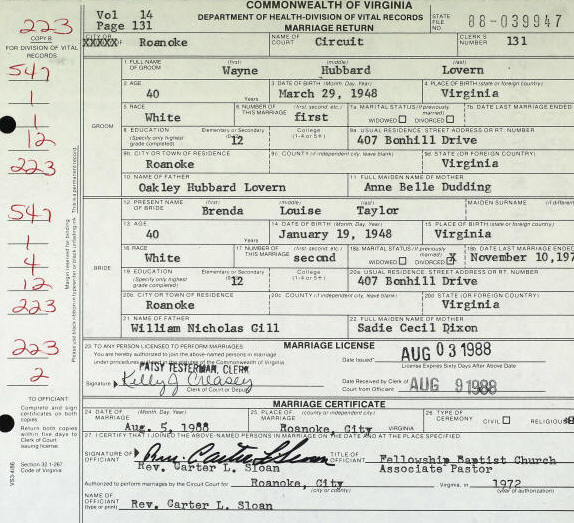 COMMONWEALTH OF VIRGINIA
Vol 14
DEPARTMENT OF HEALTH-DIVISION OF VITAL RECORDS
STATE FILE NO. 88-039947
Page 131
MARRIAGE RETURN
223
COPY B
FOR DIVISION OF VITAL RECORDS
CITY OR
XXXXX OF Roanoke
NAME OF COURT Circuit
CLERK'S NUMBER 131
547
1
1
12
223
GROOM
1 FULL NAME OF GROOM (first) (middle) (last)
Wayne Hubbard Lovern
2 AGE 3 DATE OF BIRTH (Month, Day, Year) 4 PLACE OF BIRTH (state or foreign country)
40 Years March 29, 1948 Virginia
5 RACE 6 NUMBER OF THIS MARRIAGE (first, second, etc.) 7a MARITAL STATUS (If previously married) 7b DATE LAST MARRIAGE ENDED
White first WIDOWED DIVORCED
8 EDUCATION (Specify only highest grade completed) Elementary or Secondary College (1-4 or 5+) 9a USUAL RESIDENCE STREET ADDRESS OR RT. NUMBER
12 407 Bonhill Drive
9b CITY OR TOWN OF RESIDENCE 9c COUNTY (if independent city, leave blank) 9d STATE (OR FOREIGN COUNTRY)
Roanoke Virginia
10 NAME OF FATHER 11 FULL MAIDEN NAME OF MOTHER
Oakley Hubbard Lovern Anne Belle Dudding
547
1
4
12
223
BRIDE
12 PRESENT NAME OF BRIDE (first) (middle) (last) MAIDEN SURNAME (if different)
Brenda Louise Taylor
13 AGE 14 DATE OF BIRTH (Month, Day, Year) 15 PLACE OF BIRTH (state or foreign country)
40 Years January 19, 1948 Virginia
16 RACE 17 NUMBER OF THIS MARRIAGE (first, second, etc.) 18a MARITAL STATUS (If previously married) 18b DATE LAST MARRIAGE ENDED
White second WIDOWED DIVORCED X November 10, 197
19 EDUCATION (Specify only highest grade completed) Elementary or Secondary College (1-4 or 5+) 20a USUAL RESIDENCE STREET ADDRESS OR RT. NUMBER
12 407 Bonhill Drive
20b CITY OR TOWN OF RESIDENCE 20c COUNTY (if independent city, leave blank) 20d STATE (OR FOREIGN COUNTRY)
Roanoke Virginia
21 NAME OF FATHER 22 FULL MAIDEN NAME OF MOTHER
William Nicholas Gill Sadie Cecil Dixon
Margin reserved for binding
Please use black ribbon in typewriter or black unfading ink. This is a permanent record.
223
2
23 TO ANY PERSON LICENSED TO PERFORM MARRIAGES: MARRIAGE LICENSE
You are hereby authorized to join the above-named persons in marriage
under procedures of the Commonwealth of Virginia.
PATSY TESTERMAN, CLERK
Date Issued AUG 03 1988
License Expires Sixty Days After Above Date
Signature Kelly J Creasey
Clerk of Court or Deputy
Date Received by Clerk of Court from Officiant AUG 9 1988
TO OFFICIANT
Complete and sign certificates on both copies
Return both copies within five days to Clerk of Court issuing license.
Section 32.1-267
Code of Virginia
VS3-4/86
MARRIAGE CERTIFICATE
24 DATE OF MARRIAGE (Month, Day, Year) 25 PLACE OF MARRIAGE (county or independent city) 26 TYPE OF CEREMONY CIVIL RELIGIOUS
Aug. 5, 1988 Roanoke, City VIRGINIA
27 I CERTIFY THAT I JOINED THE ABOVE-NAMED PERSONS IN MARRIAGE ON THE DATE AND AT THE PLACE SPECIFIED.
SIGNATURE OF OFFICIANT Rev. Carter L Sloan TITLE OF OFFICIANT Fellowship Baptist Church
Rev. Carter L. Sloan Associate Pastor
Authorized to perform marriages by the Circuit Court for Roanoke, City (city or county) Virginia, in 1972 (year of authorization)
NAME OF OFFICIANT (type or print) Rev. Carter L. Sloan